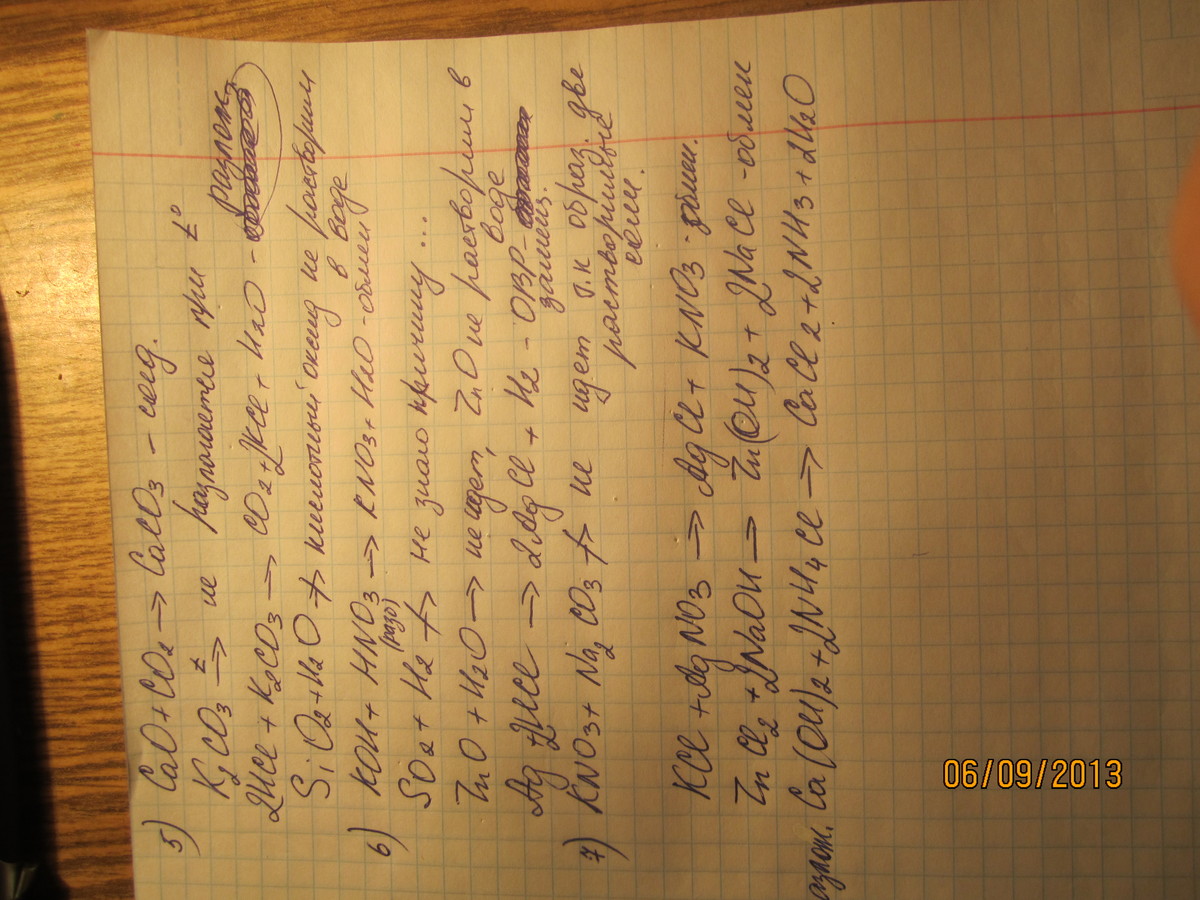 5) CaO + CO2 → CaCO3 – соед.
K2CO3 t→ не разлогается при t°
2HCl + K2CO3 → CO2 + 2KCl + H2O – разлож,
SiO2 + H2O ↛ кислотный оксид не растворим
в воде
6) KOH + HNO3 → KNO3 + H2O – обмен
(разб)
SO2 + H2 ↛ не знаю причину...
ZnO + H2O → не идет, ZnO не растворим в
воде
Ag + 2HCl → 2AgCl + H2 – ОВР –
замещ.
7) KNO3 + Na2CO3 ↛ не идет т.к образ. две
растворимые
соли.
KCl + AgNO3 → AgCl + KNO3 – обмен.
ZnCl2 + 2NaOH → Zn(OH)2 + 2NaCl – обмен
азлож. Ca(OH)2 + 2NH4Cl → CaCl2 + 2NH3 + 2H2O
06/09/2013